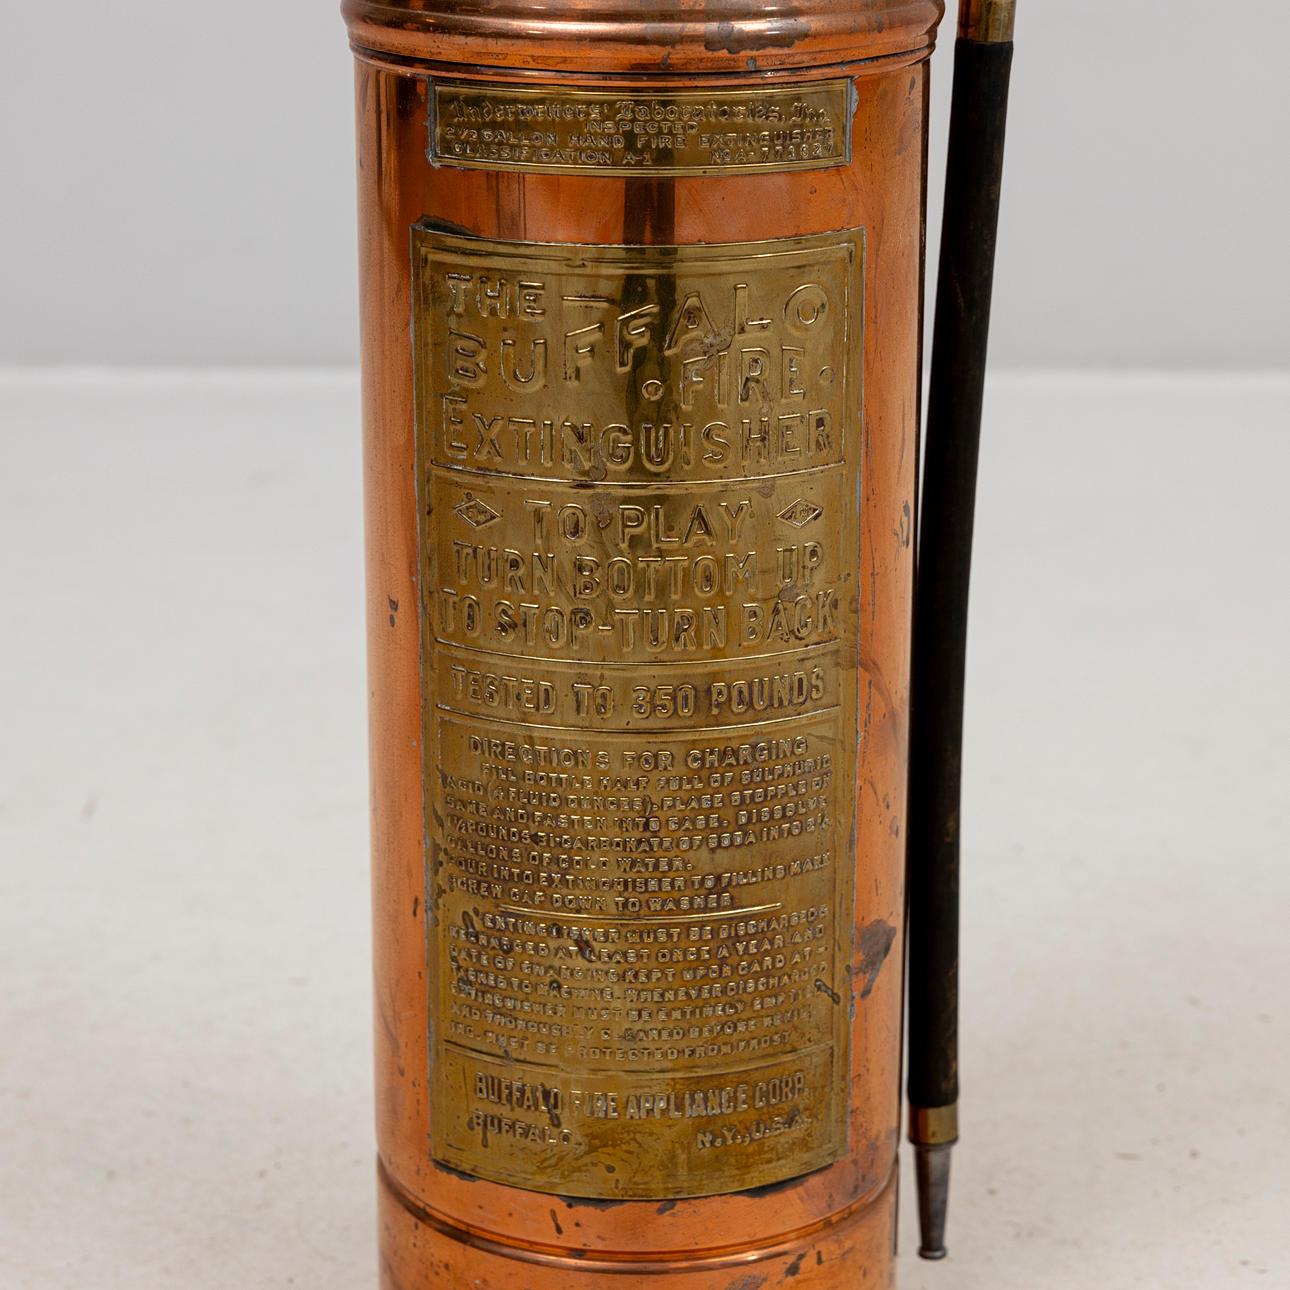 Underwriters' Laboratories, Inc.
INSPECTED
2½ GALLON HAND FIRE EXTINGUISHER
CLASSIFICATION A-1 No A-
THE BUFFALO
• FIRE •
EXTINGUISHER
TO PLAY
TURN BOTTOM UP
TO STOP-TURN BACK
TESTED TO 350 POUNDS
DIRECTIONS FOR CHARGING
FILL BOTTLE HALF FULL OF SULPHURIC
ACID (4 FLUID OUNCES). PLACE STOPPLE IN
SAME AND FASTEN INTO CAGE. DISSOLVE
1½ POUNDS BI-CARBONATE OF SODA INTO 2½
GALLONS OF COLD WATER.
POUR INTO EXTINGUISHER TO FILLING MARK
SCREW CAP DOWN TO WASHER
EXTINGUISHER MUST BE DISCHARGED &
RECHARGED AT LEAST ONCE A YEAR AND
DATE OF CHARGING KEPT UPON CARD AT-
TACHED TO MACHINE. WHENEVER DISCHARGED
EXTINGUISHER MUST BE ENTIRELY EMPTIED
AND THOROUGHLY CLEANED BEFORE REFILL-
ING. MUST BE PROTECTED FROM FROST
BUFFALO FIRE APPLIANCE CORP.
BUFFALO, N.Y., U.S.A.